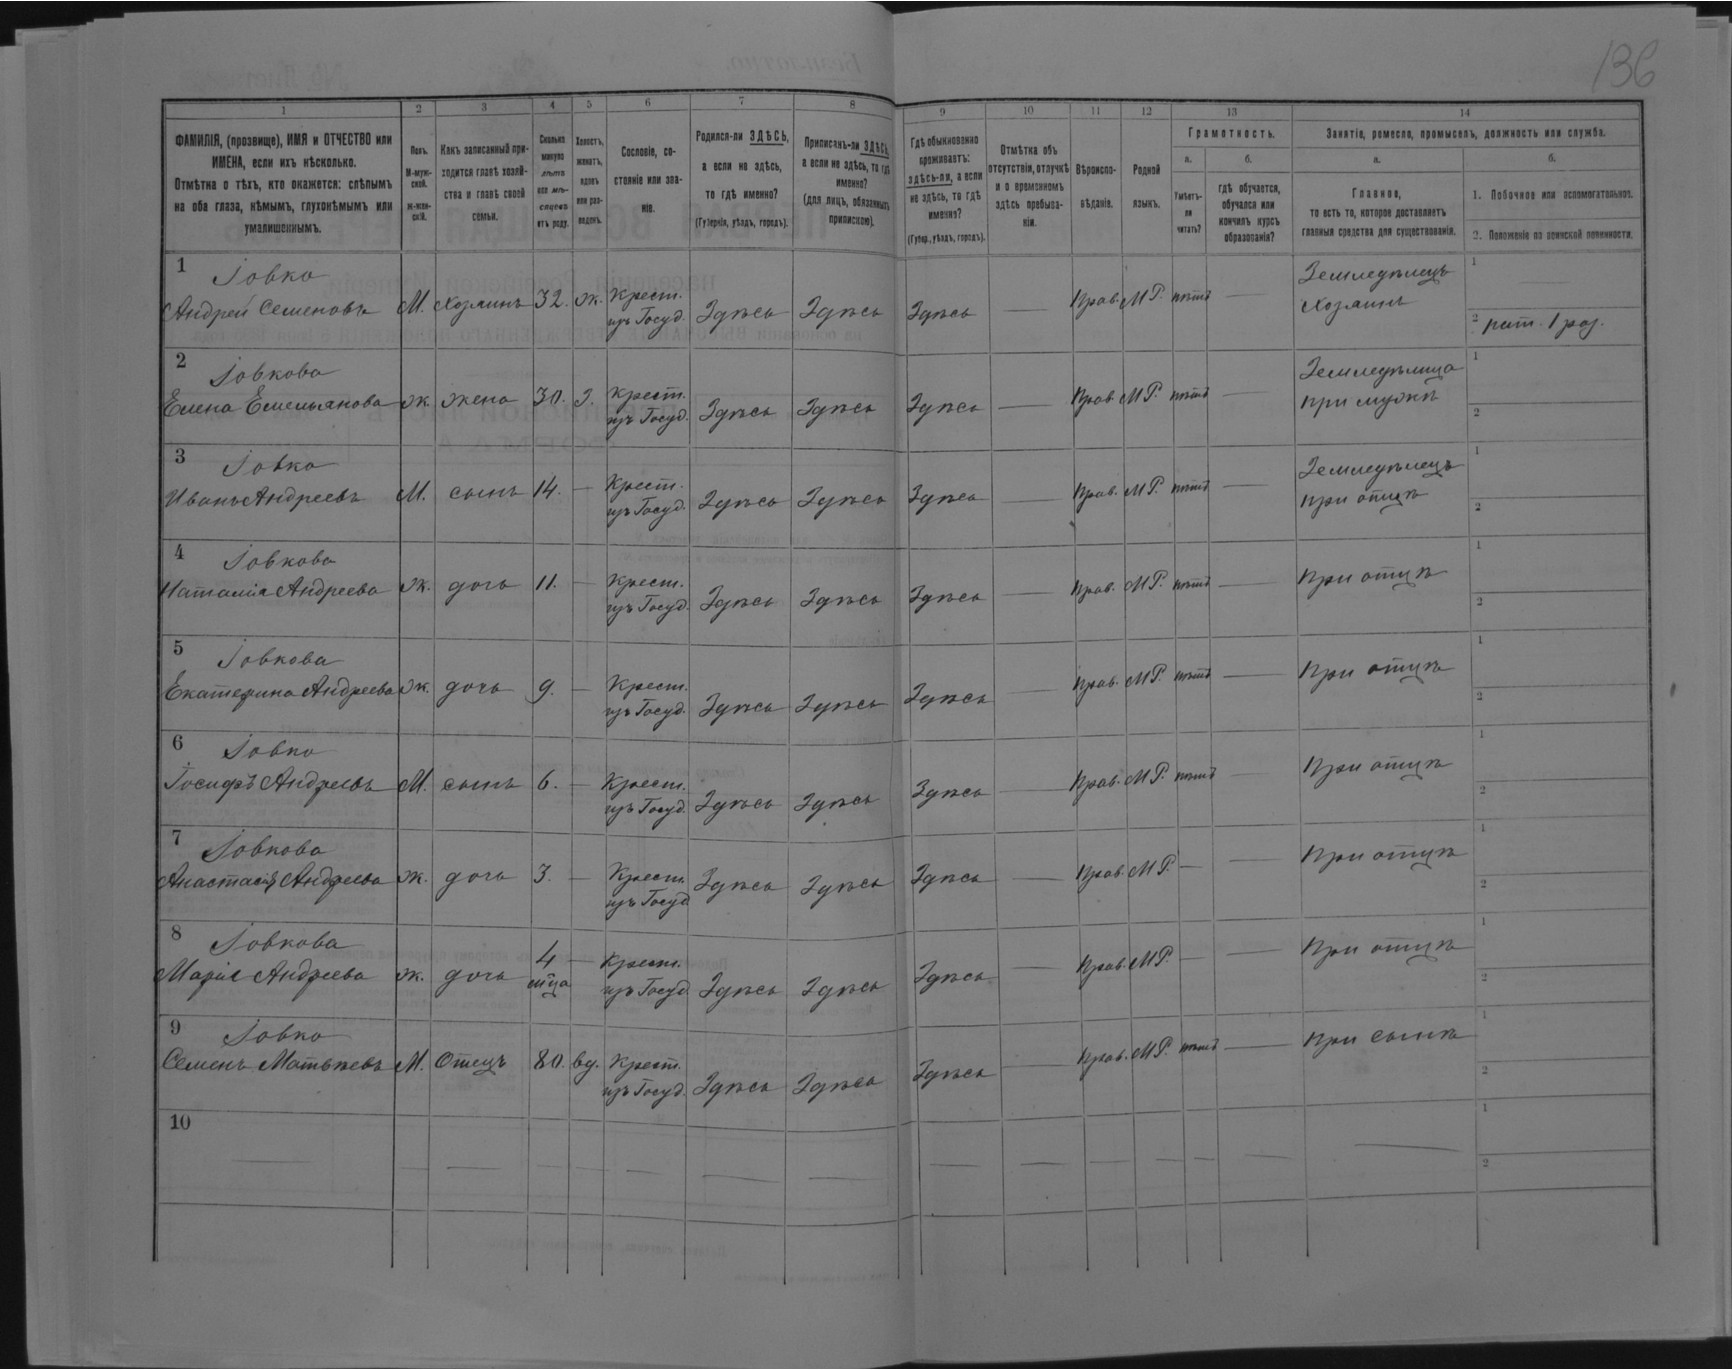 136
1 2 3 4 5 6 7 8 9 10 11 12 13 14
ФАМИЛІЯ, (прозвище), ИМЯ и ОТЧЕСТВО или
ИМЕНА, если ихъ нѣсколько.
Отмѣтка о тѣхъ, кто окажется: слѣпымъ
на оба глаза, нѣмымъ, глухонѣмымъ или
умалишеннымъ.
Полъ.
М-муж-
ской.
Ж-жен-
скій.
Какъ записанный при-
ходится главѣ хозяй-
ства и главѣ своей
семьи.
Сколько
минуло
лѣтъ
или мѣ-
сяцевъ
отъ роду.
Холостъ,
женатъ,
вдовъ
или раз-
веденъ.
Сословіе, со-
стояніе или зва-
ніе.
Родился-ли ЗДѢСЬ,
а если не здѣсь,
то гдѣ именно?
(Губернія, уѣздъ, городъ).
Приписанъ-ли ЗДѢСЬ,
а если не здѣсь, то гдѣ
именно?
(для лицъ, обязанныхъ
припискою).
Гдѣ обыкновенно
проживаетъ:
здѣсь-ли, а если
не здѣсь, то гдѣ
именно?
(Губер., уѣздъ, городъ).
Отмѣтка объ
отсутствіи, отлучкѣ
и о временномъ
здѣсь пребыва-
ніи.
Вѣроиспо-
вѣданіе.
Родной
языкъ.
Грамотность.
а.
Умѣетъ-
ли
читать?
б.
гдѣ обучается,
обучался или
кончилъ курсъ
образованія?
Занятіе, ремесло, промыселъ, должность или служба.
а.
Главное,
то есть то, которое доставляетъ
главныя средства для существованія.
б.
1. Побочное или вспомогательное.
2. Положеніе по воинской повинности.
1 Іовко
Андрей Семеновъ М. Хозяинъ 32. ж. Крест.
изъ Госуд. Здѣсь Здѣсь Здѣсь — Прав. МР. нѣтъ — Земледѣлецъ
Хозяинъ
1 —
2 рат. 1 раз.
2 Іовкова
Елена Емельянова ж. жена 30. з. Крест.
изъ Госуд. Здѣсь Здѣсь Здѣсь — Прав. МР. нѣтъ — Земледѣлица
при мужѣ
1
2
3 Іовко
Иванъ Андреевъ М. сынъ 14. — Крест.
изъ Госуд. Здѣсь Здѣсь Здѣсь — Прав. МР. нѣтъ — Земледѣлецъ
при отцѣ
1
2
4 Іовкова
Наталія Андреева ж. дочь 11. — Крест.
изъ Госуд. Здѣсь Здѣсь Здѣсь — Прав. МР. нѣтъ — При отцѣ
1
2
5 Іовкова
Екатерина Андреева ж. дочь 9. — Крест.
изъ Госуд. Здѣсь Здѣсь Здѣсь Прав. МР. нѣтъ — При отцѣ
1
2
6 Іовко
Іосифъ Андреевъ М. сынъ 6. — Крест.
изъ Госуд. Здѣсь Здѣсь Здѣсь — Прав. МР. нѣтъ — При отцѣ
1
2
7 Іовкова
Анастасія Андреева ж. дочь 3. — Крест.
изъ Госуд Здѣсь Здѣсь Здѣсь — Прав. МР. — — При отцѣ
1
2
8 Іовкова
Марія Андреева ж. дочь 4
м̃ца — Крест.
изъ Госуд Здѣсь Здѣсь Здѣсь — Прав. МР. — — При отцѣ
1
2
9 Іовко
Семенъ Матвѣевъ М. Отецъ 80. вд. Крест.
изъ Госуд. Здѣсь Здѣсь Здѣсь — Прав. МР. нѣтъ — При сынѣ
1
2
10
1
2